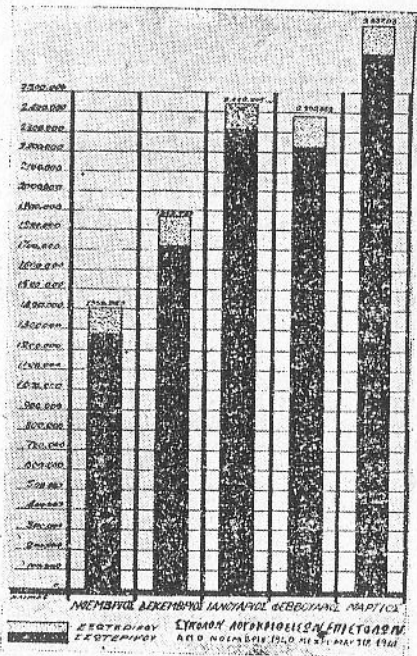 2500.000
2.400.000
2300.000
2200.000
2100.000
2000.000
1900.000
1800.000
1700.000
1600.000
1500.000
1400.000
1300.000
1200.000
1100.000
1000.000
900.000
800.000
700.000
600.000
500.000
400.000
300.000
200.000
100.000
0
ΝΟΕΜΒΡΙΟΣ ΔΕΚΕΜΒΡΙΟΣ ΙΑΝΟΥΑΡΙΟΣ ΦΕΒΒΟΥΑΡΙΟΣ ΜΑΡΤΙΟΣ
ΕΣΩΤΕΡΙΚΟΥ
ΕΞΩΤΕΡΙΚΟΥ
ΣΥΝΟΛΟΝ ΛΟΓΟΚΡΙΘΕΙΣΩΝ ΕΠΙΣΤΟΛΩΝ
ΑΠΟ ΝΟΕΜΒΡΙΟ 1940 ΜΕΧΡΙ ΜΑΡΤΙΟ 1941